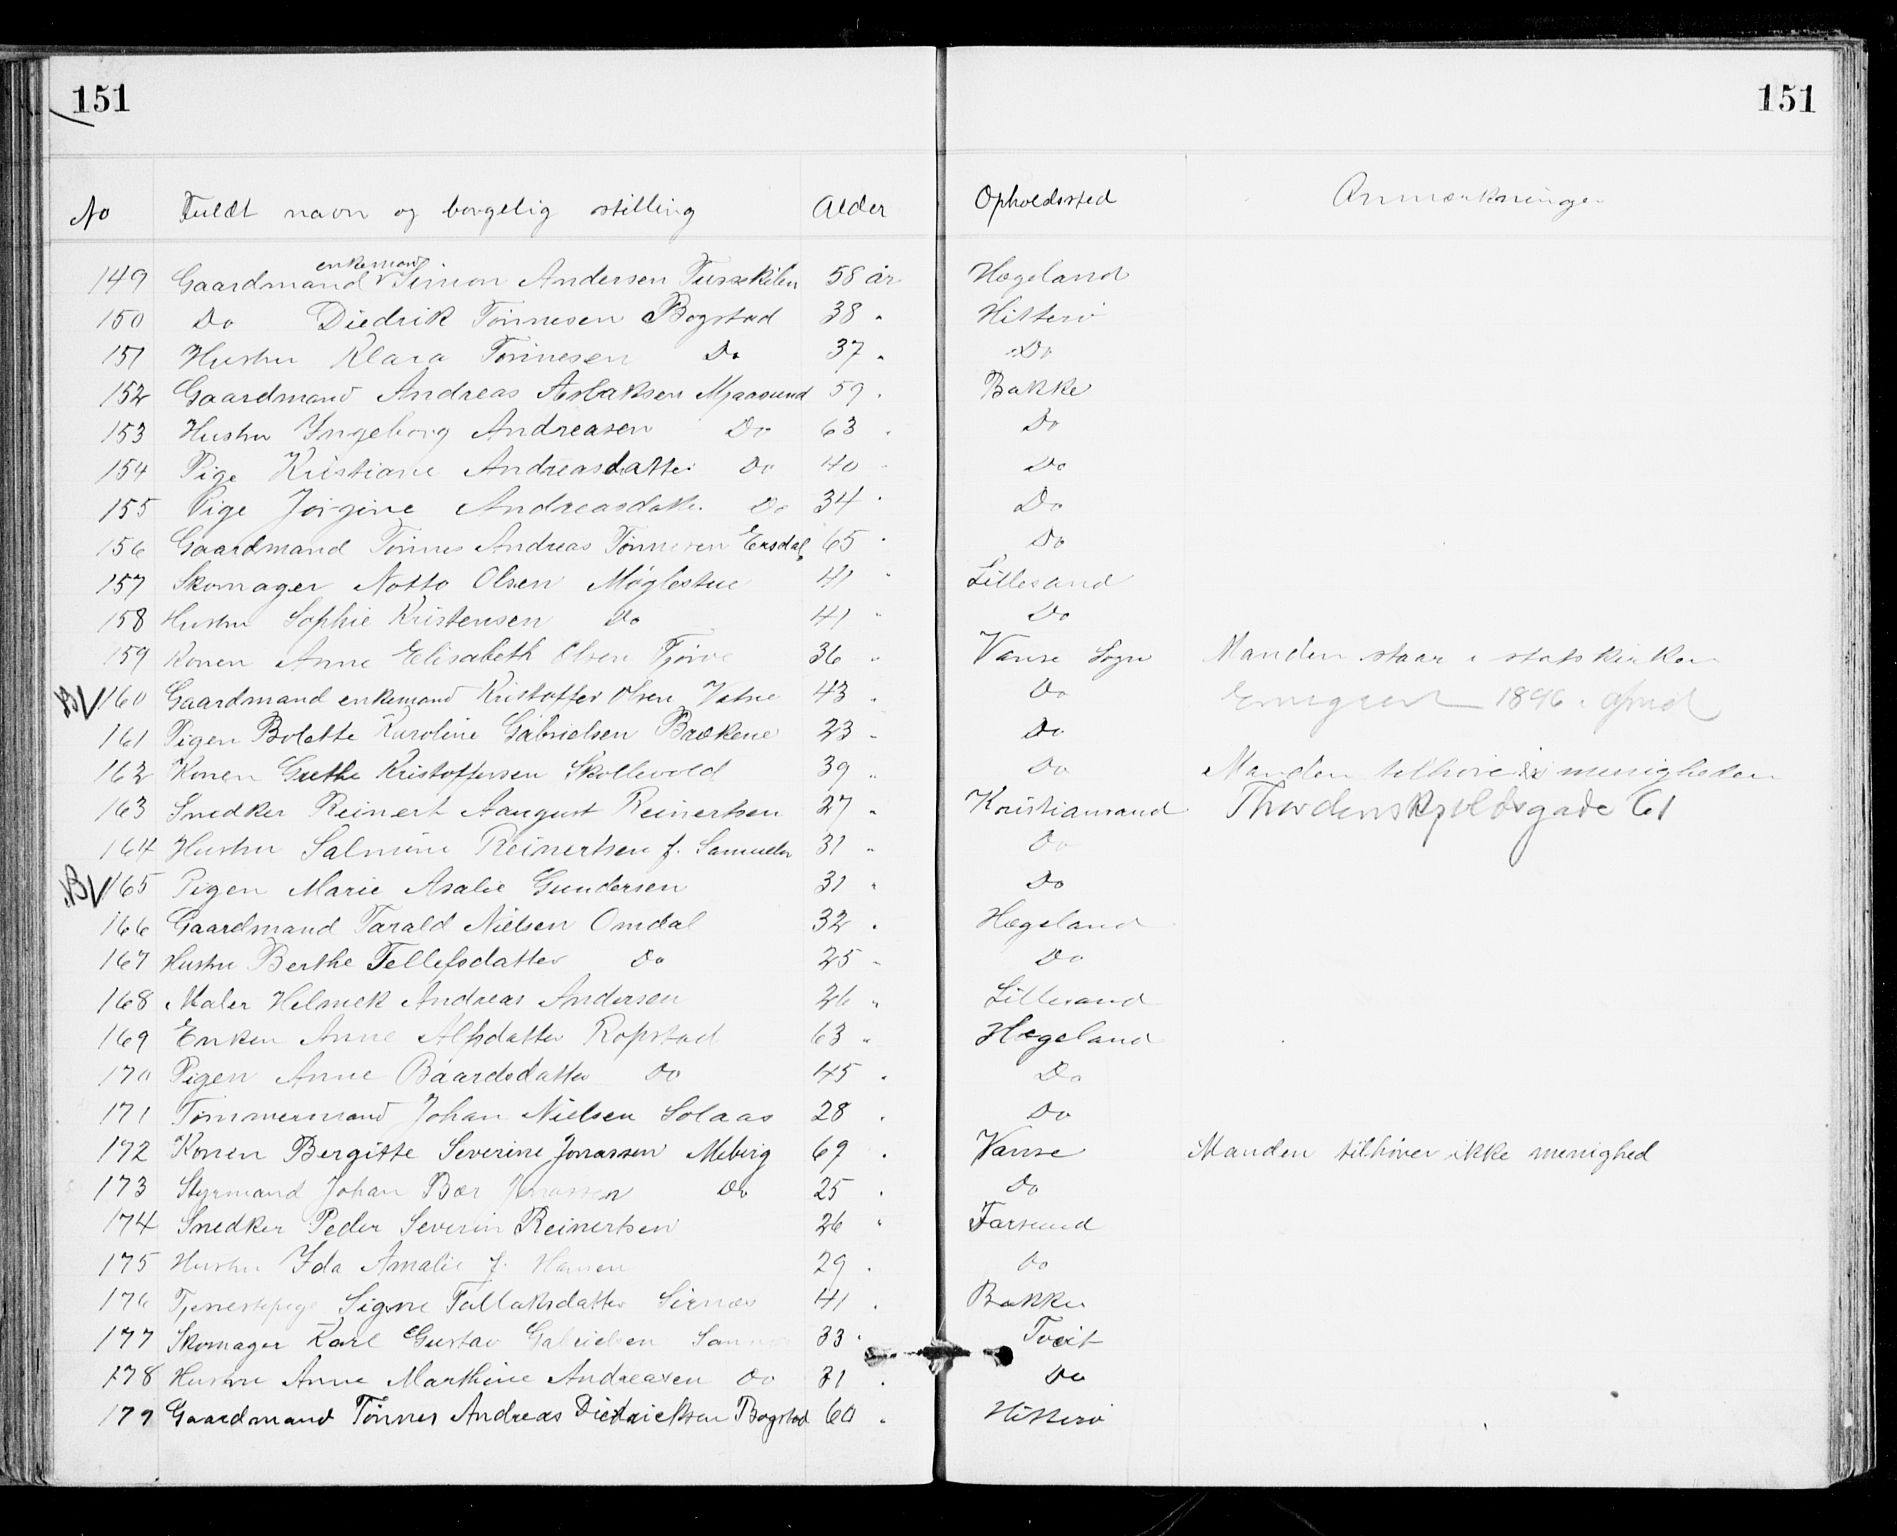 151 151
No Fuldt navn og borgelig stilling Alder Opholdssted Anmærkninger
149 Gaardmand enkemand Simon Andersen 58 år Hægeland
150 Do Diedrik Tønnesen Bogstad 38 " Hitterø
151 Hustru Klara Tønnesen Do 37 " Do
152 Gaardmand Andreas Aslaksen Mjaasund 59 " Bakke
153 Hustru Yngeborg Andreasen Do 63 " Do
154 Pige Kristiane Andreasdatter Do 40 " Do
155 Pige Jørgine Andreasdatt. Do 34 " Do
156 Gaardmand Tønnes Andreas Tønnesen Ersdal 65 " Do
157 Skomager Notto Olsen Møglestue 41 " Lillesand
158 Hustru Sophie Kristensen Do 41 " Do
159 Konen Anne Elisabeth Olsen Tjørve 36 " Vanse Sogn Manden staar i statskirken
160 Gaardmand enkemand Kristoffer Olsen Vatne 43 " Do 1896
161 Pigen Bolette Karoline Gabrielsen Brækene 23 " Do
162 Konen Grethe Kristoffersen Skollevold 39 " Do Manden tilhører menigheden
163 Snedker Reinert Aangust Reinertsen 27 " Kristiansand Thordenskjoldsgade 61
164 Hustru Salmine Reinertsen f. Samuelsn 31 " Do
165 Pigen Marie Asalie Gundersen 31 " Do
166 Gaardmand Tarald Nielsen Omdal 32 " Hægeland
167 Hustru Berthe Tellefsdatter Do 25 " Do
168 Maler Helmek Andreas Andersen 26 " Lillesand
169 Enken Anne Alfsdatter Ropstad 63 " Hægeland
170 Pigen Anne Baardsdatter Do 45 " Do
171 Tømmermand Johan Nielsen Solaas 28 " Do
172 Konen Bergitte Severine Jonassen Meberg 69 " Vanse Manden tilhører ikke menighed
173 Styrmand Johan Bær Jonassen Do 25 " Do
174 Snedker Peder Severin Reinertsen 26 " Farsund
175 Hustru Ida Amalie f. Hansen 29 " Do
176 Tjenestepige Signe Tallaksdatter Sirnæs 41 " Bakke
177 Skomager Karl Gustav Gabrielsen 33 " Tveit
178 Hustru Anne Marthine Andreasen Do 31 " Do
179 Gaardmand Tønnes Andreas Diedricksen Bogstad 60 " Hitterø